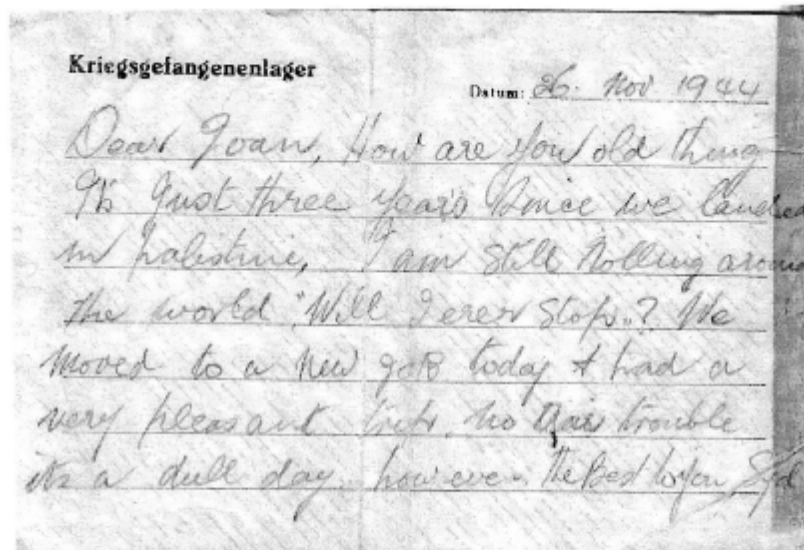 Kriegsgefangenenlager
Datum: 26. Nov 1944
Dear Joan, How are you old thing
It's Just three years since we landed
in palestine, I am still Rolling around
the world "Will I ever stop"? We
moved to a new job today & had a
very pleasant trip, no trouble
its a dull day however. The Best to you Syd